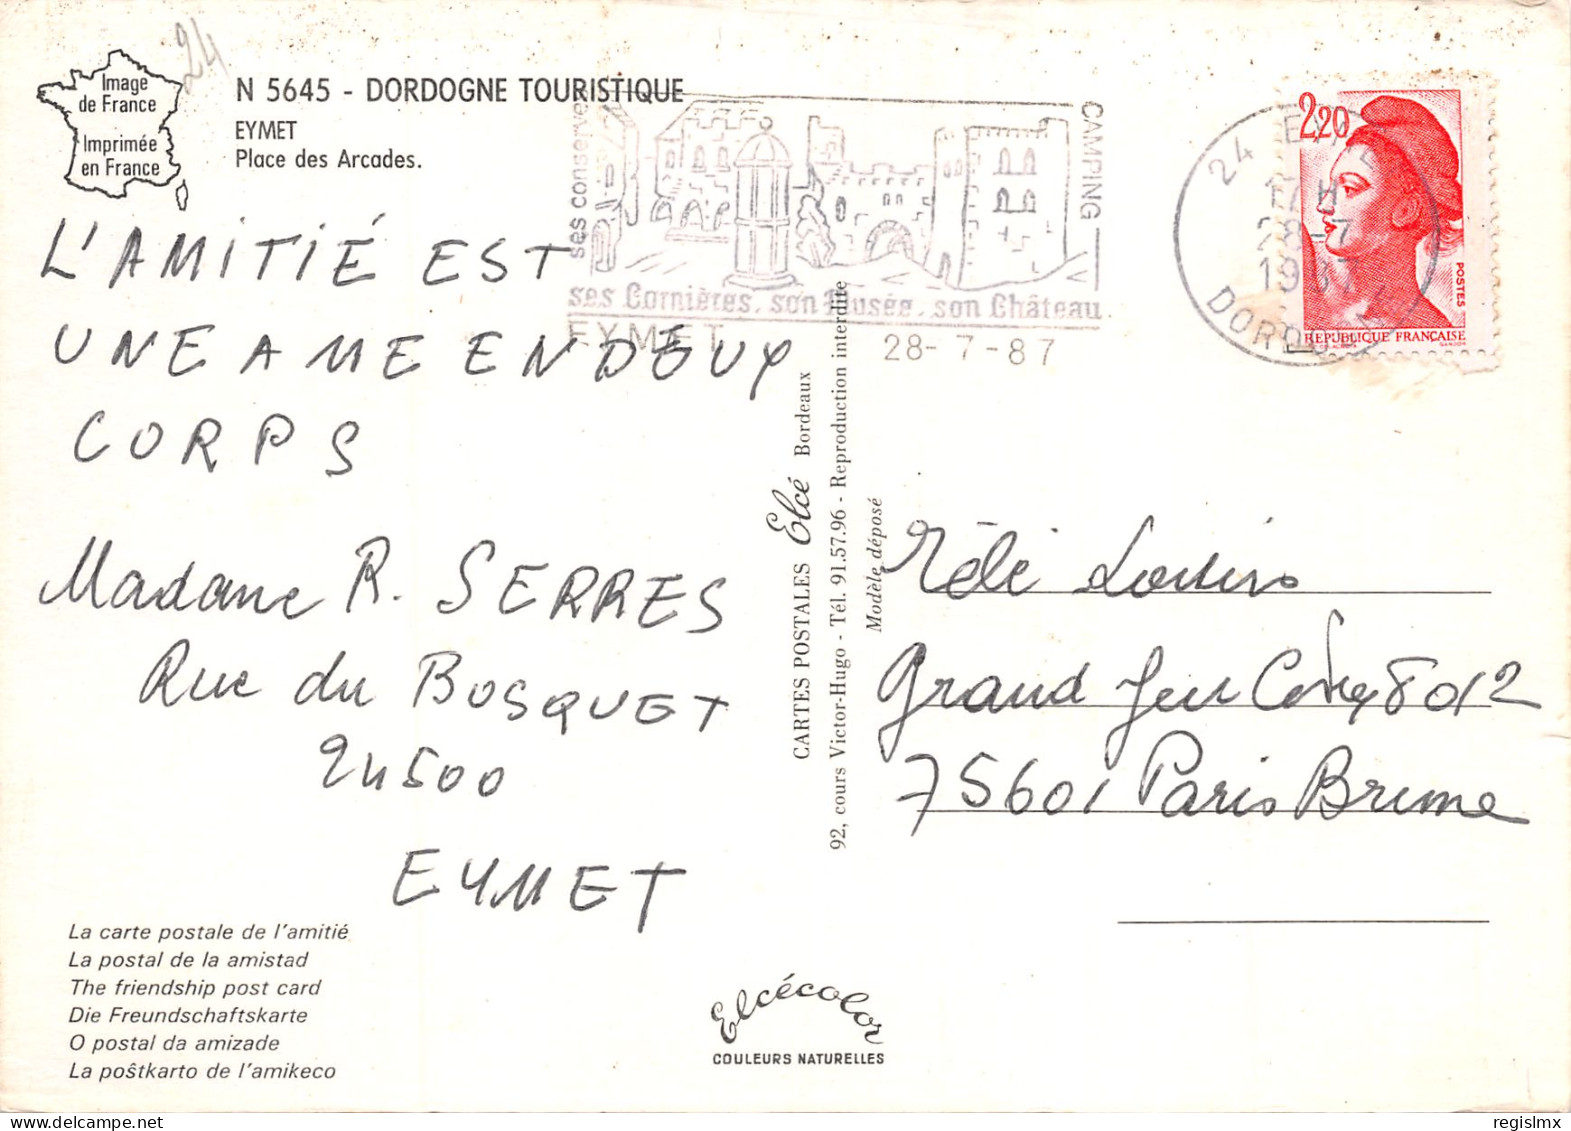 24
Image
de France
Imprimée
en France
N 5645 - DORDOGNE TOURISTIQUE
EYMET
Place des Arcades.
ses conserves
CAMPING
ses Cornières, son Musée, son Château
EYMET
28-7-87
24 EYMET
17H
28-7
1987
DORDOGNE
2,20
POSTES
REPUBLIQUE FRANÇAISE
GANDON
L'AMITIÉ EST
UNE AME EN DEUX
CORPS
Madame R. SERRES
Rue du BOSQUET
24500
EYMET
CARTES POSTALES Elcé Bordeaux
92, cours Victor-Hugo - Tél. 91.57.96 - Reproduction interdite
Modèle déposé
Télé Loisirs
Grand Jeu 8012
75601 Paris Brune
La carte postale de l'amitié
La postal de la amistad
The friendship post card
Die Freundschaftskarte
O postal da amizade
La poŝtkarto de l'amikeco
Elcécolor
COULEURS NATURELLES
regislmx